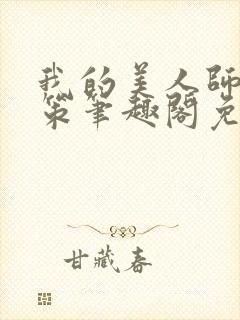 我的美人师
策笔趣阁免
甘藏春